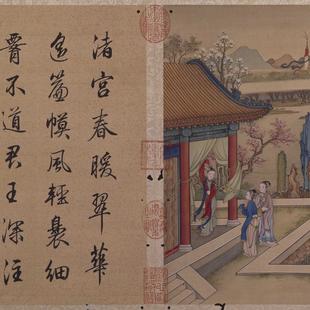 渚宮春暖翠華
遙簾幙風輕裊細
腰不道君王深注